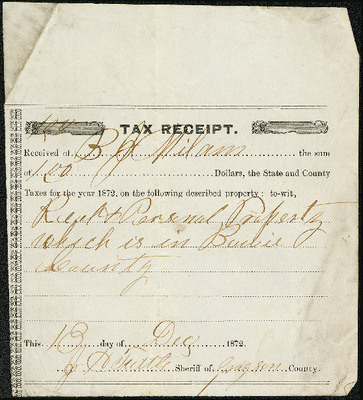 TAX RECEIPT.
Received of B F Milam the sum
of 1.00 Dollars, the State and County
Taxes for the year 1872, on the following described property: to-wit,
Real & Personal Property
which is in Bowie
County
This 13 day of Dec 1872.
Sheriff of County.